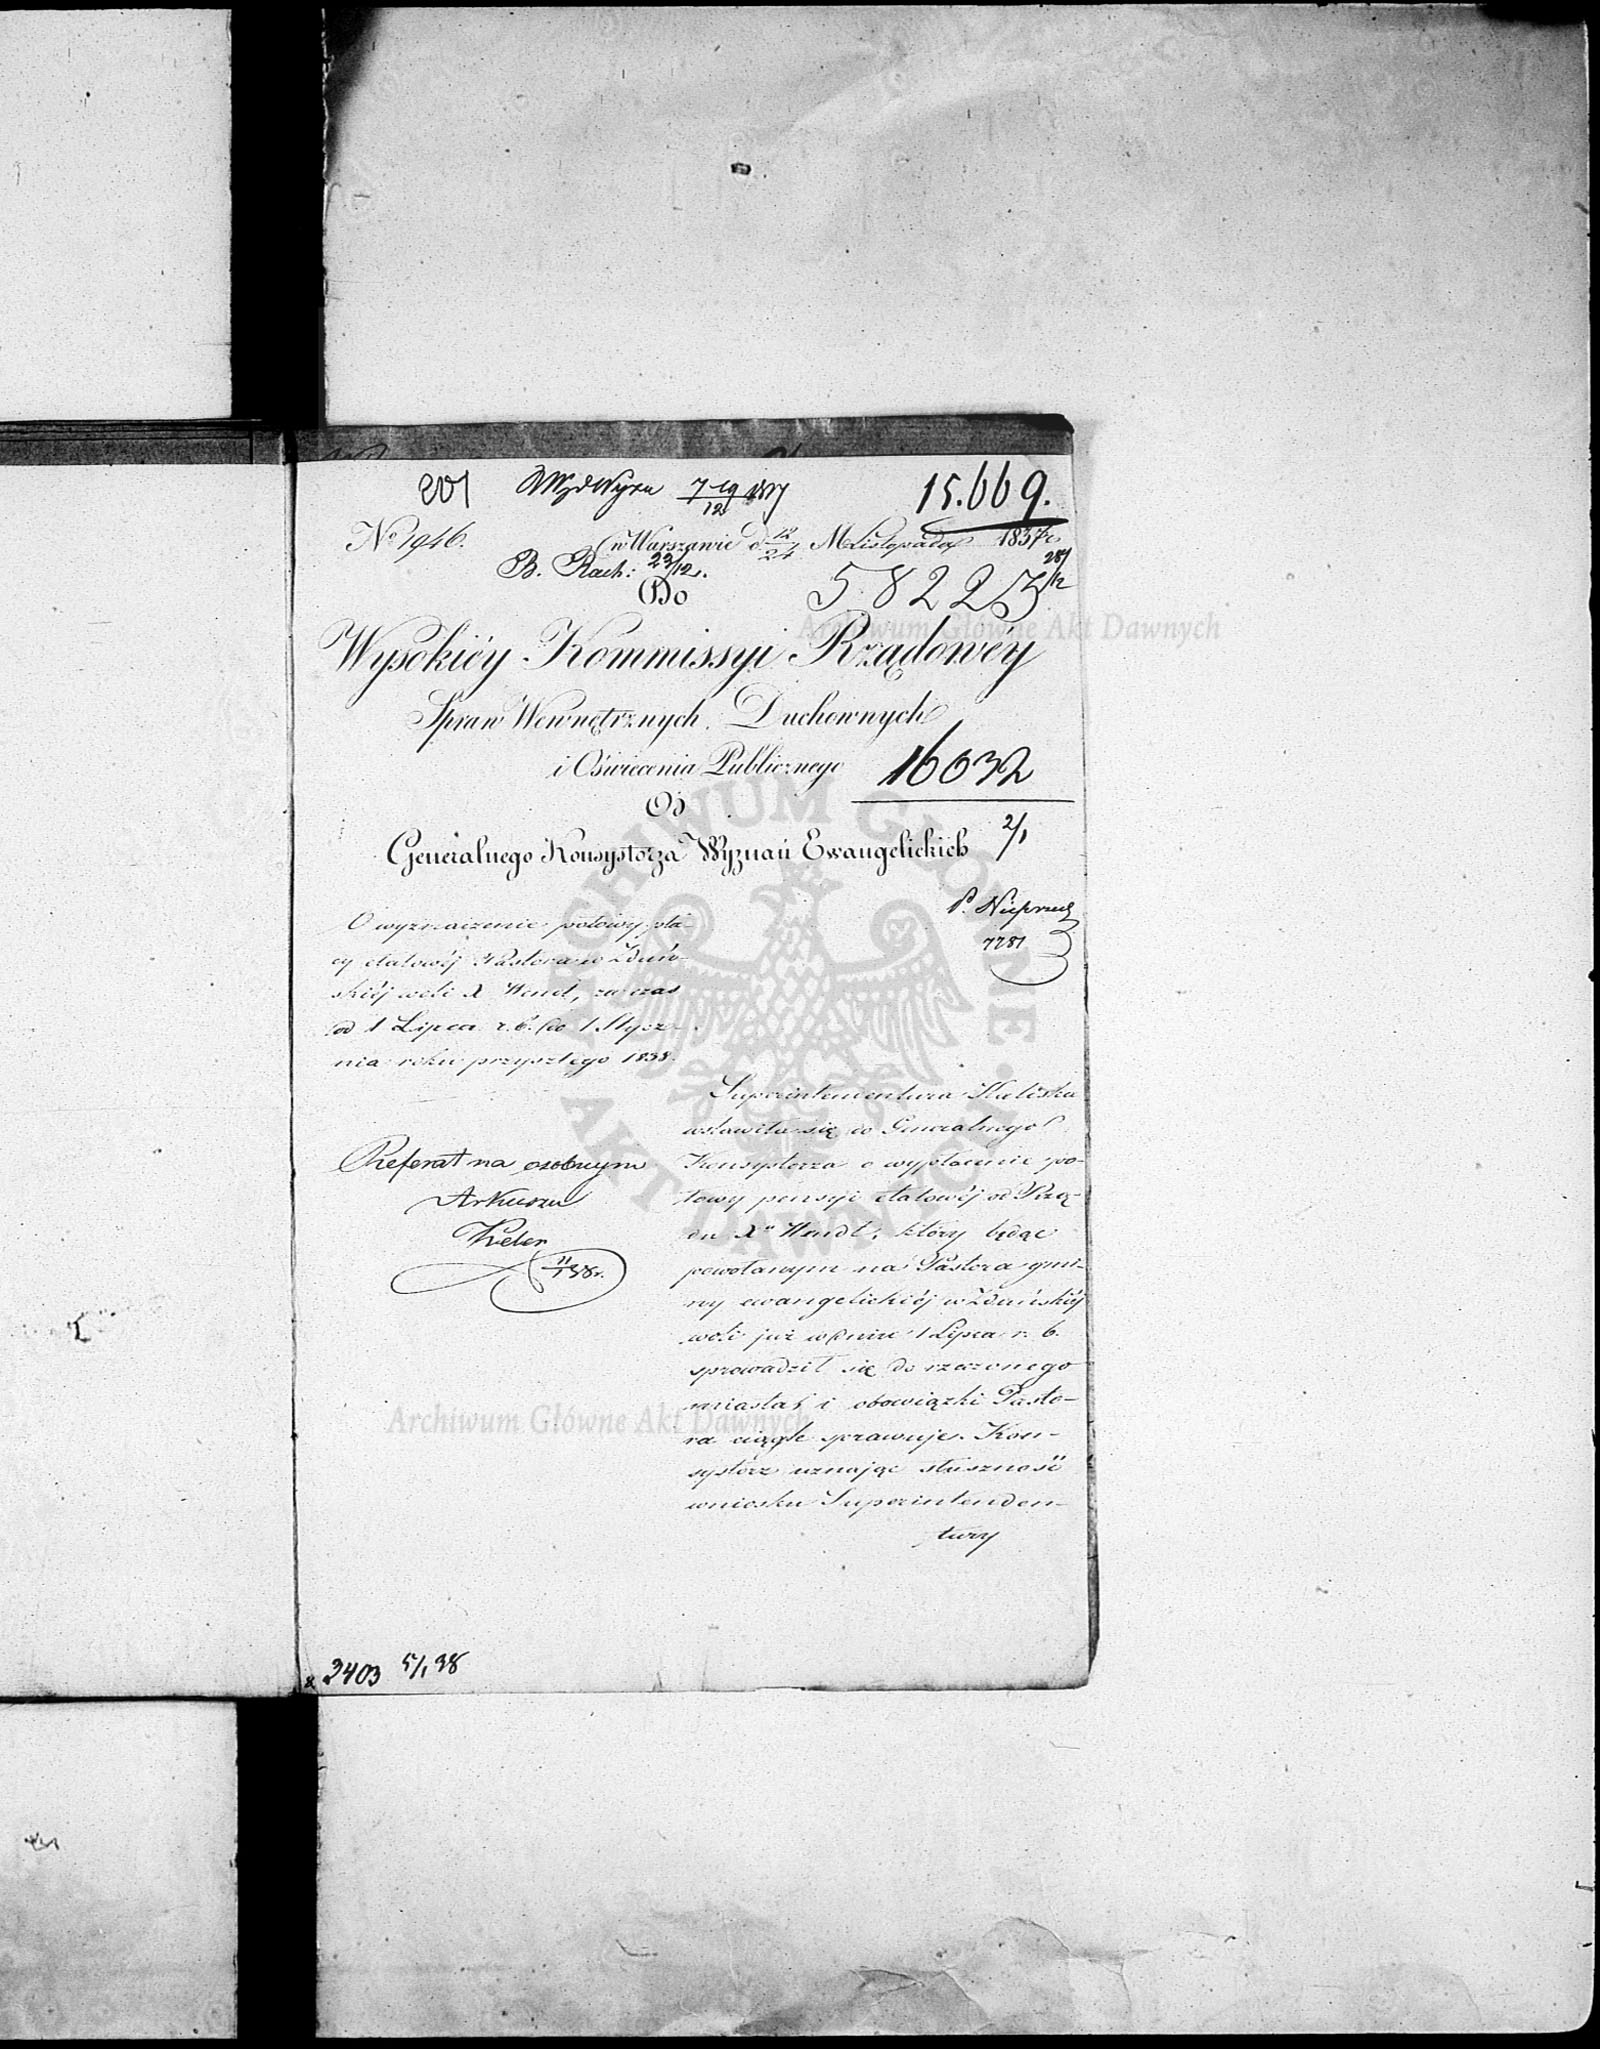 201 7 19 1837 15.669.
12
No 1946. w Warszawie d. 12/24 M. Listopada 1837 r.
B. Rach: 23/12. 28/12
Do 58223
Wysokiéy Kommissyi Rządowéy
Spraw Wewnętrznych, Duchownych
i Oświecenia Publicznego 16032
Od 2/1
Generalnego Konsystorza Wyznań Ewangelickich
P.
7781
O wyznaczenie połowy pła-
cy etatowéj Pastora w Zduń-
skiéj woli X Wendt, za czas
od 1 Lipca r. b. do 1 Stycz-
nia roku przyszłego 1838.
Referat na osobnym
Arkuszu
Keler
11/1 38 r.
Superintendentura Kaliska
wstawiła się do Generalnego
Konsystorza o wypłacenie po-
łowy pensyi etatowéj od Rzą-
du Xu Wendt, który będąc
powołanym na Pastora gmi-
ny ewangelickiéj w Zduńskiéj
woli już w dniu 1 Lipca r. b.
sprowadził się do rzeczonego
miasta i obowiązki Pasto-
ra ciągle sprawuje. Kon-
systorz uznając słuszność
wniosku Superintenden-
tury
2403 5/1 38
Archiwum Główne Akt Dawnych
Archiwum Główne Akt Dawnych
ARCHIWUM GŁÓWNE AKT DAWNYCH